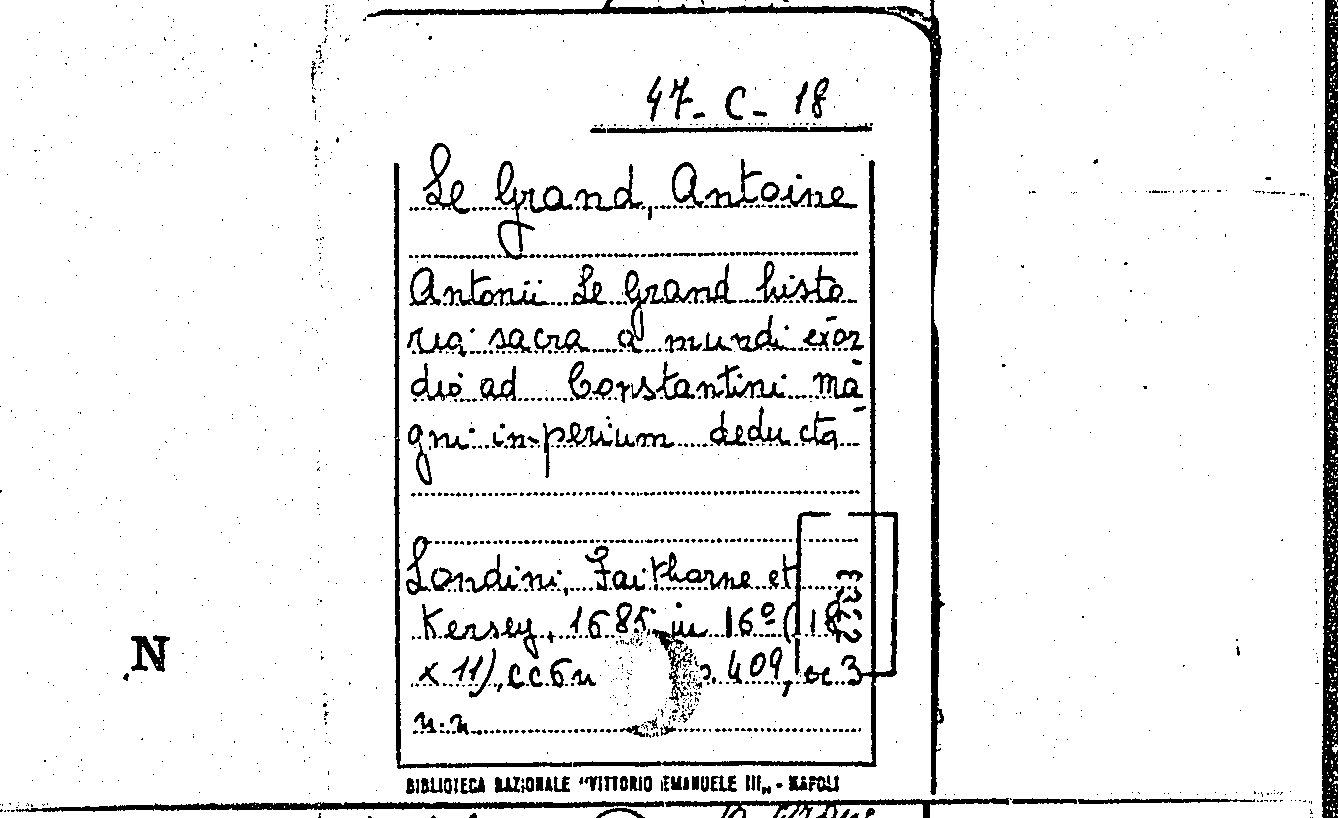 47-C-18
Le Grand, Antoine
Antonii Le Grand histo
ria sacra a mundi exor
dio ad Constantini ma
gni imperium deducta
Londini, Faitharne et
Kersey, 1685 in 16º (18
x 11), cc 6 n p. 409, cc 3
n.n.
3322
N
BIBLIOTECA NAZIONALE "VITTORIO EMANUELE III„ - NAPOLI